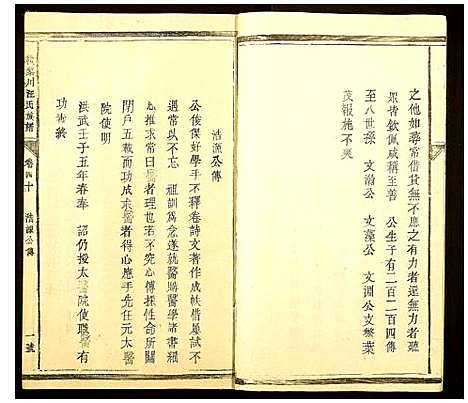 之他如尋常借貸無不應之有力者還無力者聽
眾皆欽佩咸稱至善　公生子有二百二百四傳
至八世孫　文瀚公　文藻公　文淵公文繁葉
茂報施不爽
浩源公傳
公俊傑好學手不釋卷詩文著作成帙借屢試不
遇常以不忘　祖訓為念遂執醫購醫學諸書羅
心推求常曰醫者心傳操性命所關
閉戶五載而功成求醫者得心應手先任元太醫
院使明
洪武壬子五年春奉　詔仍授太醫院使職醫有
功術終
汪氏族譜
卷四十
浩源公傳
一號